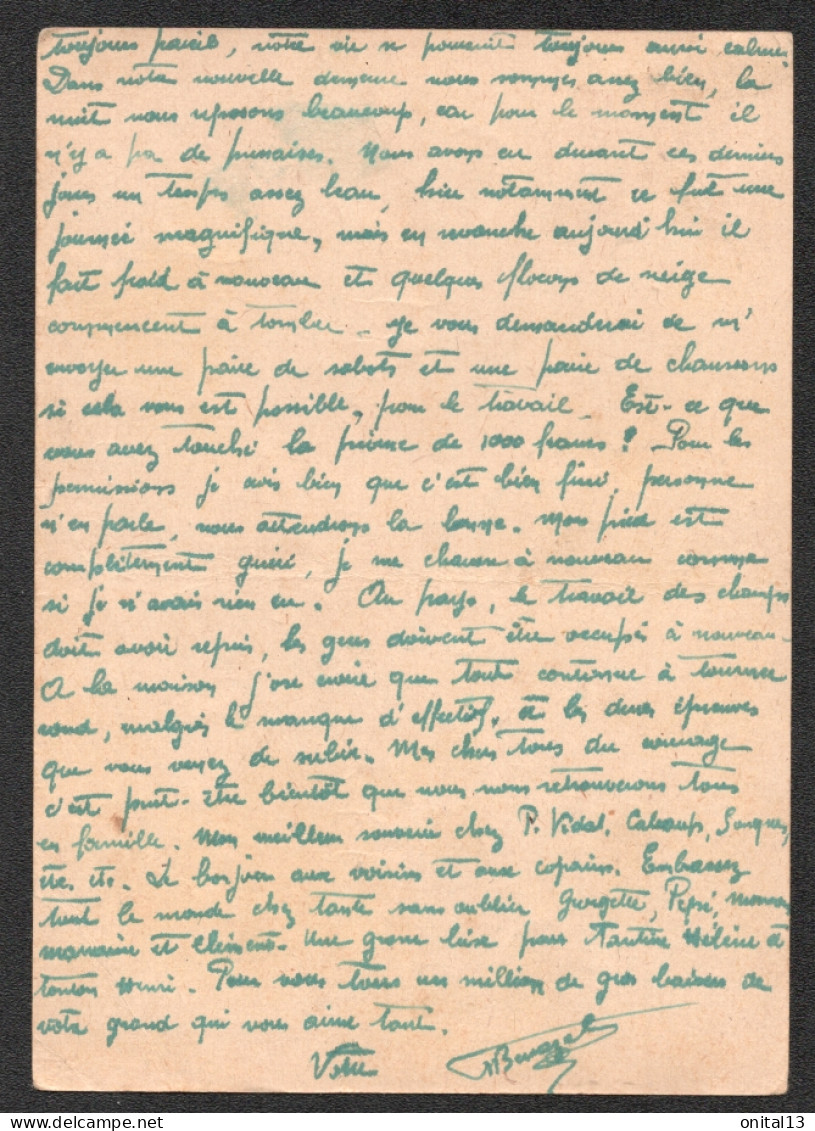 toujours pareil, notre vie se poursuit toujours aussi calme.
Dans notre nouvelle demeure nous sommes assez bien, la
nuit nous reposons beaucoup, car pour le moment il
n'y a pas de punaises. Nous avons eu durant ces derniers
jours un temps assez beau, hier notamment ce fut une
journée magnifique, mais en revanche aujourd'hui il
fait froid à nouveau et quelques flocons de neige
commencent à tomber. Je vous demanderai de m'
envoyer une paire de sabots et une paire de chaussons
si cela vous est possible, pour le travail. Est-ce que
vous avez touché la prime de 1000 francs? Pour les
permissions je crois bien que c'est bien fini, personne
n'en parle, nous attendrons la bonne. Mon pied est
complètement guéri, je me chausse à nouveau comme
si je n'avais rien eu. Au pays, le travail des champs
doit avoir repris, les gens doivent être occupés à nouveau.
A la maison j'ose croire que tout continue à tourner
rond, malgré le manque d'effectifs, et les dures épreuves
que vous venez de subir. Mes chers tous du courage
c'est peut-être bientôt que nous nous retrouverons tous
en famille. Mon meilleur souvenir chez P. Vidal,
etc. etc. Le bonjour aux voisins et aux copains. Embrassez
tout le monde chez tante sans oublier Georgette, Pépé,
marraine et Clément. Une grosse bise pour Tantine Hélène et
tonton Henri. Pour vous tous un million de gros baisers de
votre grand qui vous aime tant.
Votre
www.delcampe.net
onital13